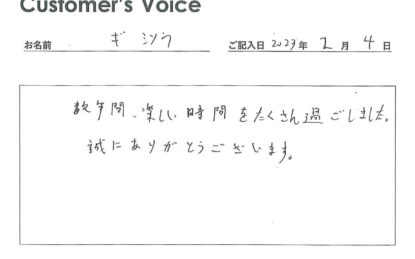 Customer's Voice
お名前 ギ ミツラ ご記入日 2023年 2月 4日
数年間、楽しい時間をたくさん過ごしました。
誠にありがとうございます。